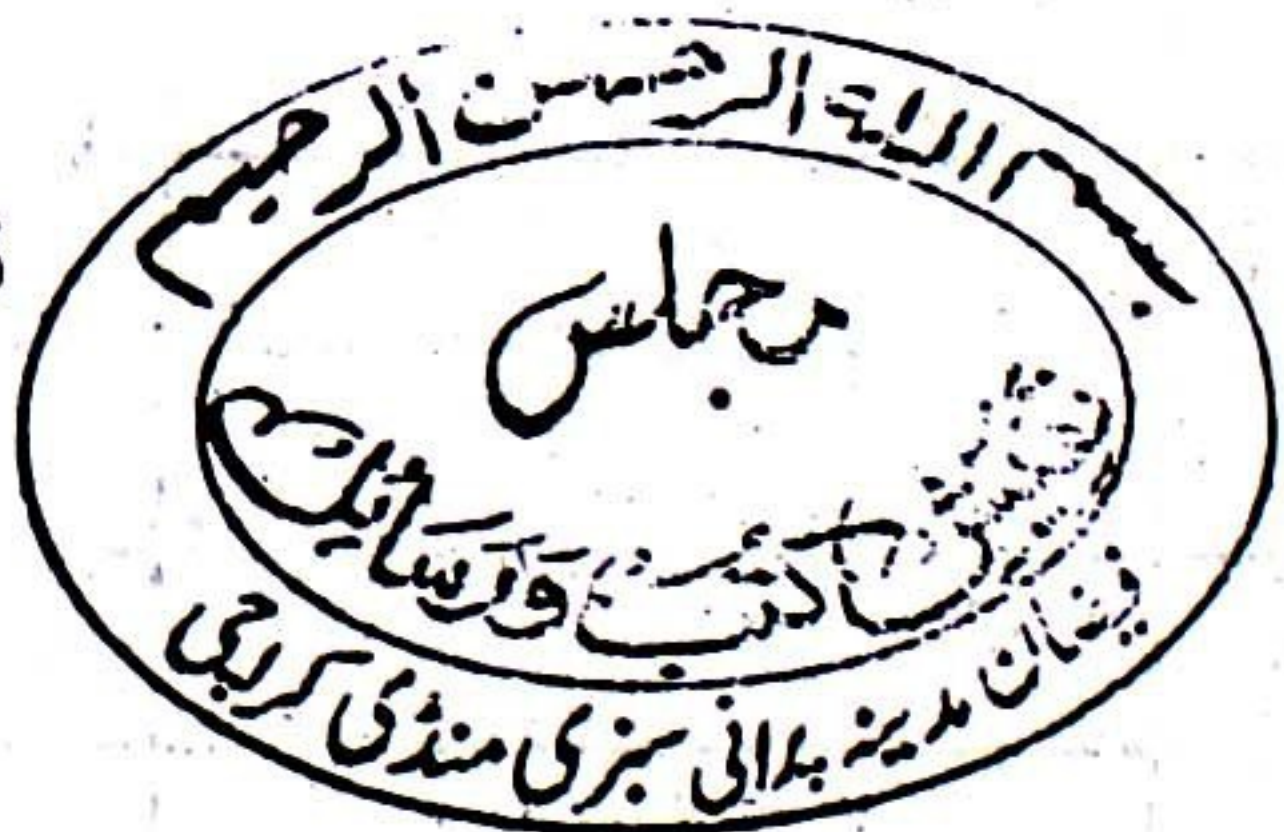 بسم اللہ الرحمن الرحیم
مجلس
کتب ورسائل
فیضان مدینہ پرانی سبزی منڈی کراچی